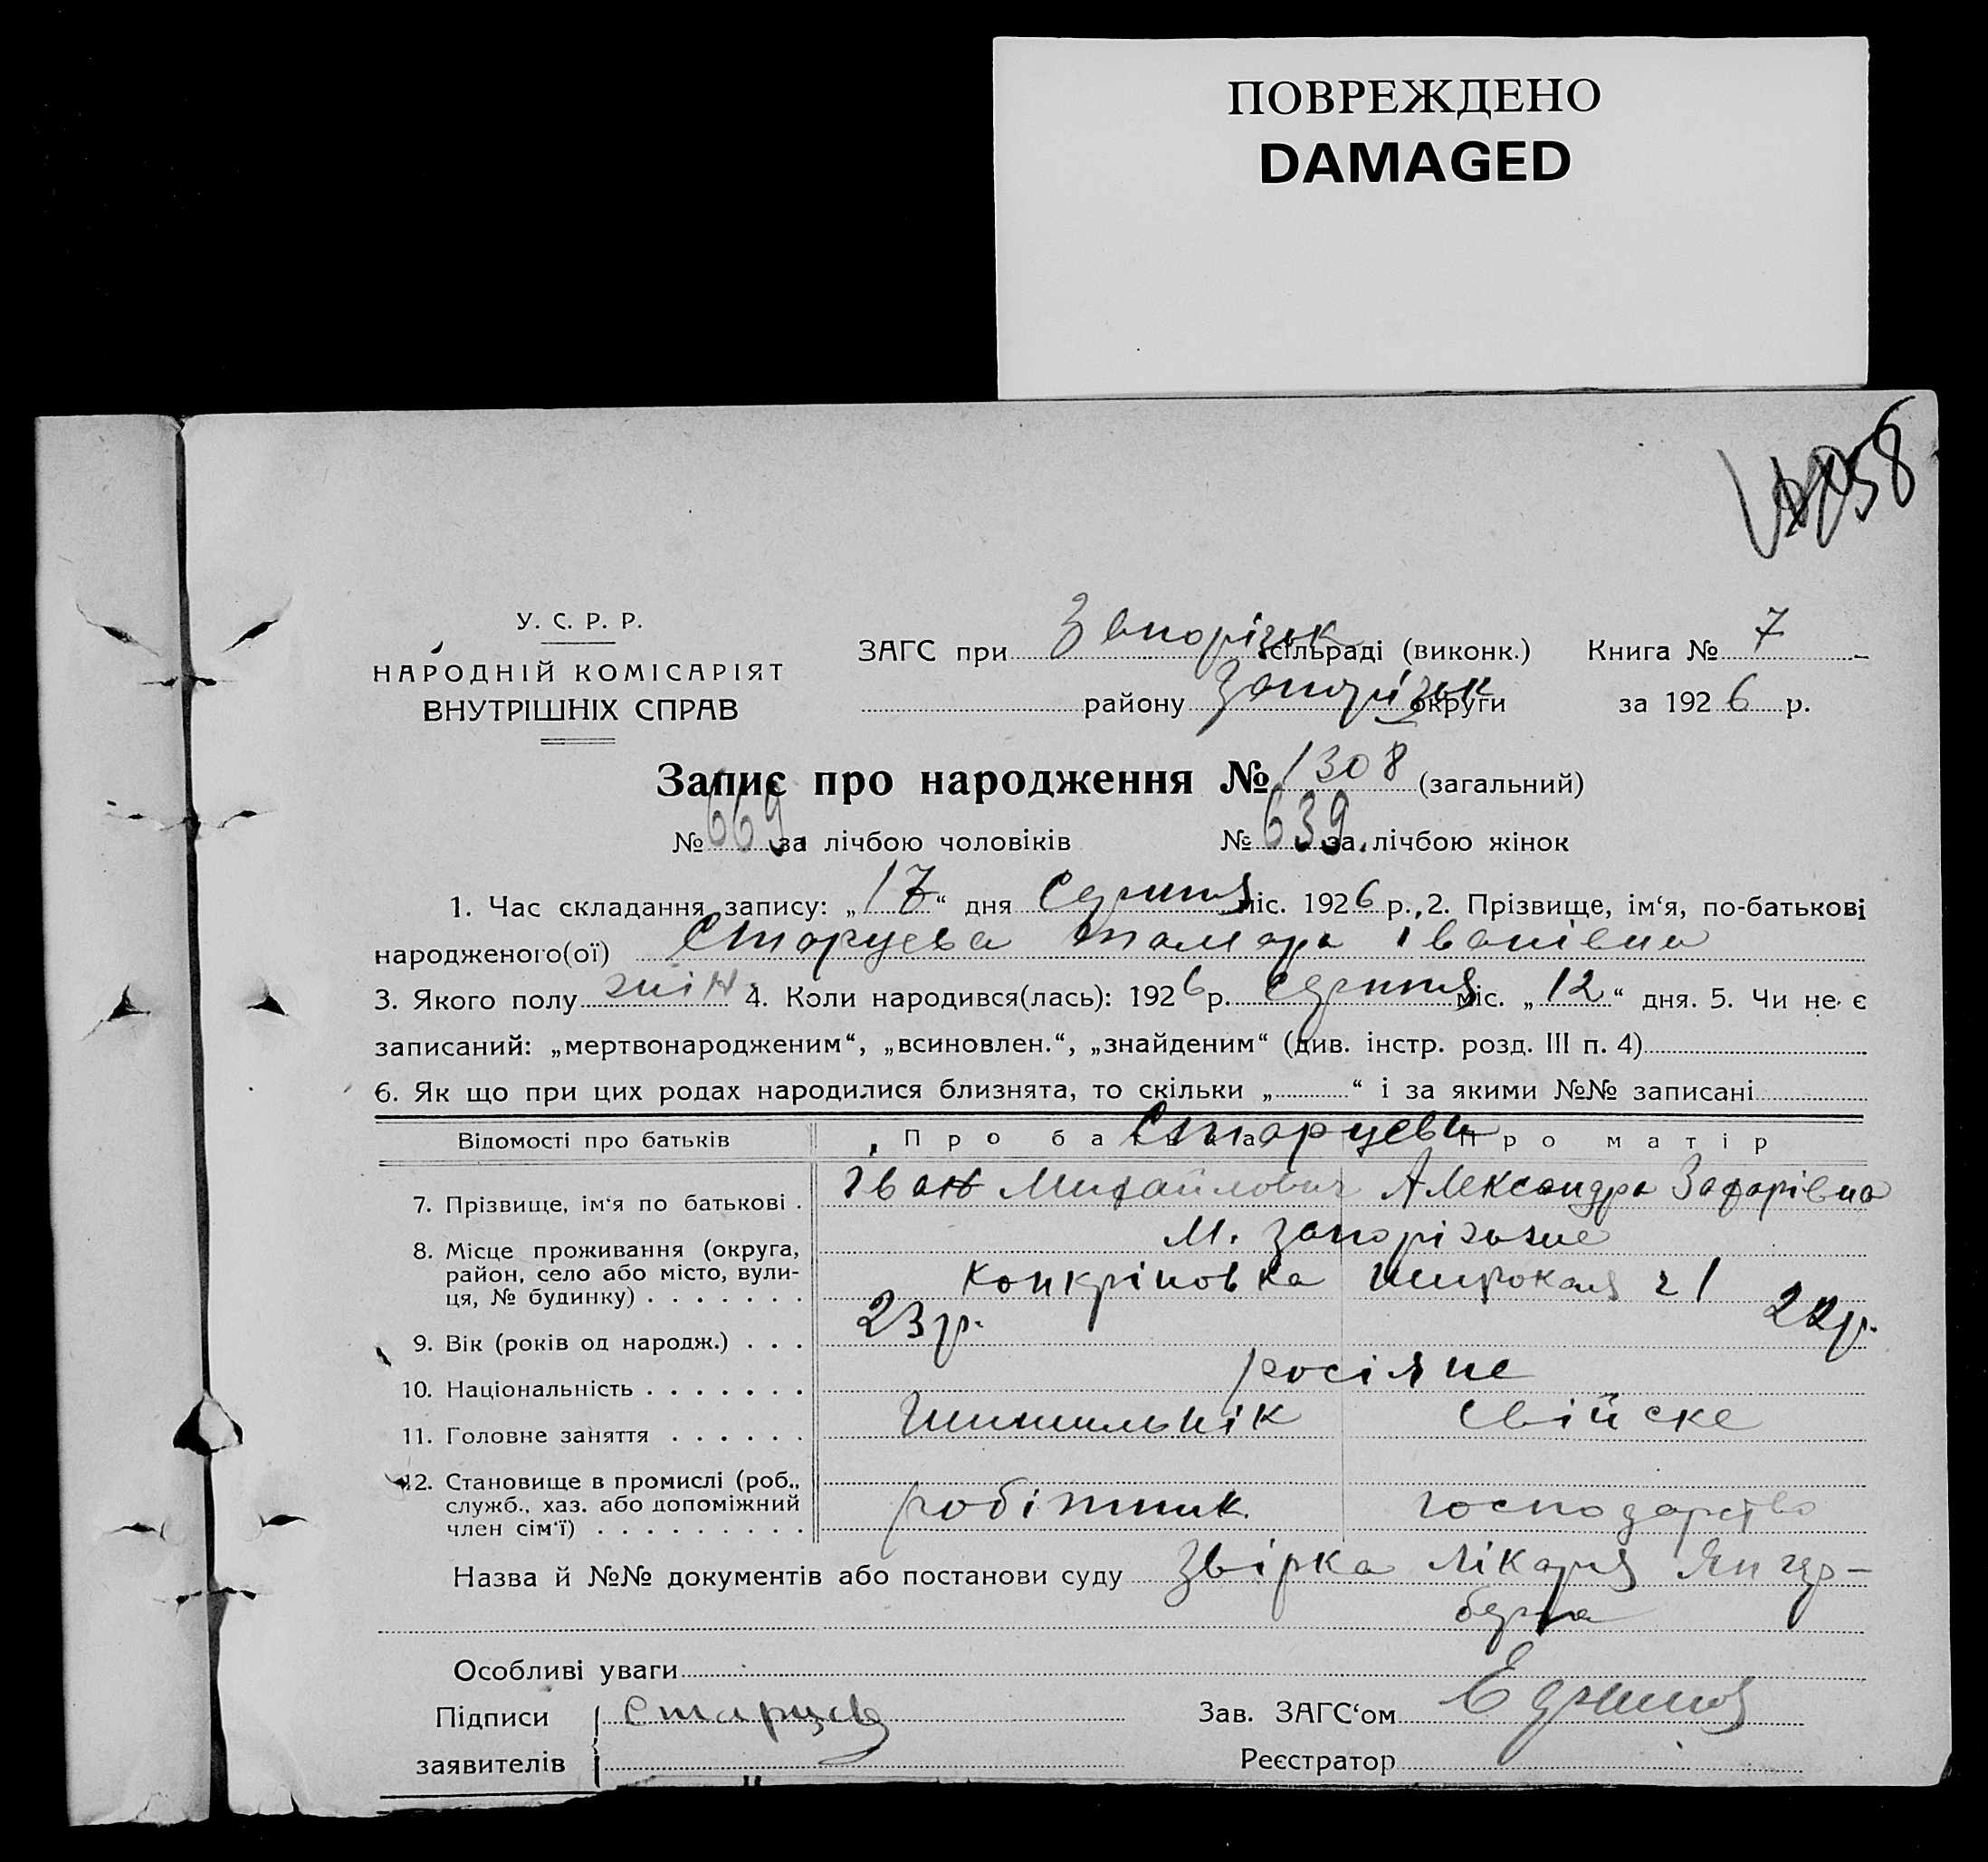 ПОВРЕЖДЕНО
DAMAGED
У. С. Р. Р.
НАРОДНІЙ КОМІСАРІЯТ
ВНУТРІШНІХ СПРАВ
ЗАГС при Запорізьк сільраді (виконк.) Книга № 7
району Запорізьк округи за 1926 р.
Запис про народження № 1308 (загальний)
№ 669 за лічбою чоловіків № 639 за лічбою жінок
1. Час складання запису: „17“ дня Серпня міс. 1926 р., 2. Прізвище, ім‘я, по-батькові
народженого(ої) Старцева Тамара Іванівна
3. Якого полу жін. 4. Коли народився(лась): 1926 р. Серпня міс. „12“ дня. 5. Чи не є
записаний: „мертвонародженим“, „всиновлен.“, „знайденим“ (див. інстр. розд. III п. 4)
6. Як що при цих родах народилися близнята, то скільки „ “ і за якими №№ записані
Відомості про батьків Про батька Старцеви Про матір
7. Прізвище, ім‘я по батькові . Іван Михайлович Александра Захарівна
8. Місце проживання (округа, м. Запоріжжє
район, село або місто, вули-
ця, № будинку) . . . . . . . Широкая 21
9. Вік (років од народж.) . . . 23 р. 22 р.
10. Національність . . . . . . . росіяне
11. Головне заняття . . . . . . свійске
12. Становище в промислі (роб.,
служб., хаз. або допоміжний робітник. господарство
член сім‘ї) . . . . . . . . .
Назва й №№ документів або постанови суду Звірка лікаря
Особливі уваги
Підписи Старцев Зав. ЗАГС‘ом
заявителів Реєстратор